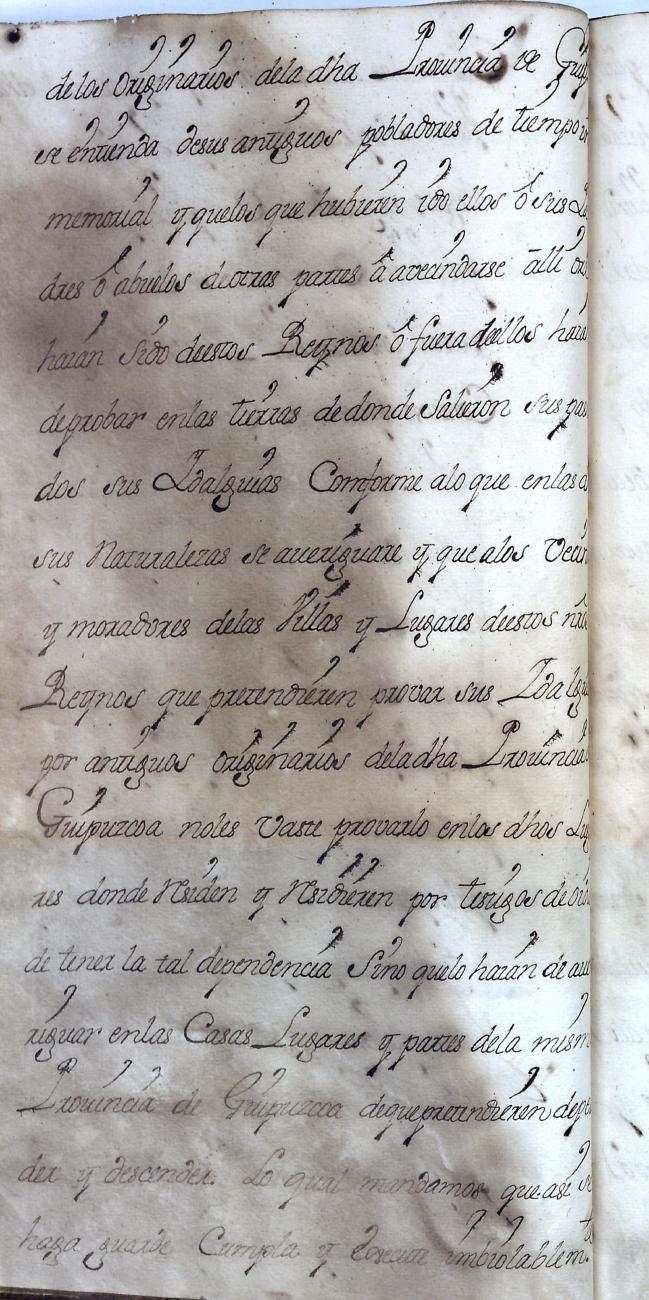 delos Originarios dela dha Provincia de Guip
se entienda desus antiguos pobladores de tiempo in
memorial y quelos que hubieren ido ellos ô sus Pa
dres ô abuelos deotras partes â avecindarse âlli ora
haian sido deestos Reynos ô fuera deellos haian
deprobar enlas tierras de donde salieron sus pasa
dos sus Idalguias Comforme alo que enlas de
sus Naturalezas se averiguare y que alos Vecin
y moradores delas Villas y Lugares deestos nros
Reynos que pretendieren provar sus Idalgui
por antiguos originarios dela dha Provincia
Guipuzcoa noles Vaste provarlo enlos dhos Luga
res donde Residen y Residieren por testigos de oid
de tener la tal dependencia Sino quelo haian de ave
riguar enlas Casas Lugares y partes dela mism
Provincia de Guipuzcoa dequepretendieren depen
der y descender. Lo qual mandamos que asi se
haga guarde Cumpla y Execute imbiolablem.te